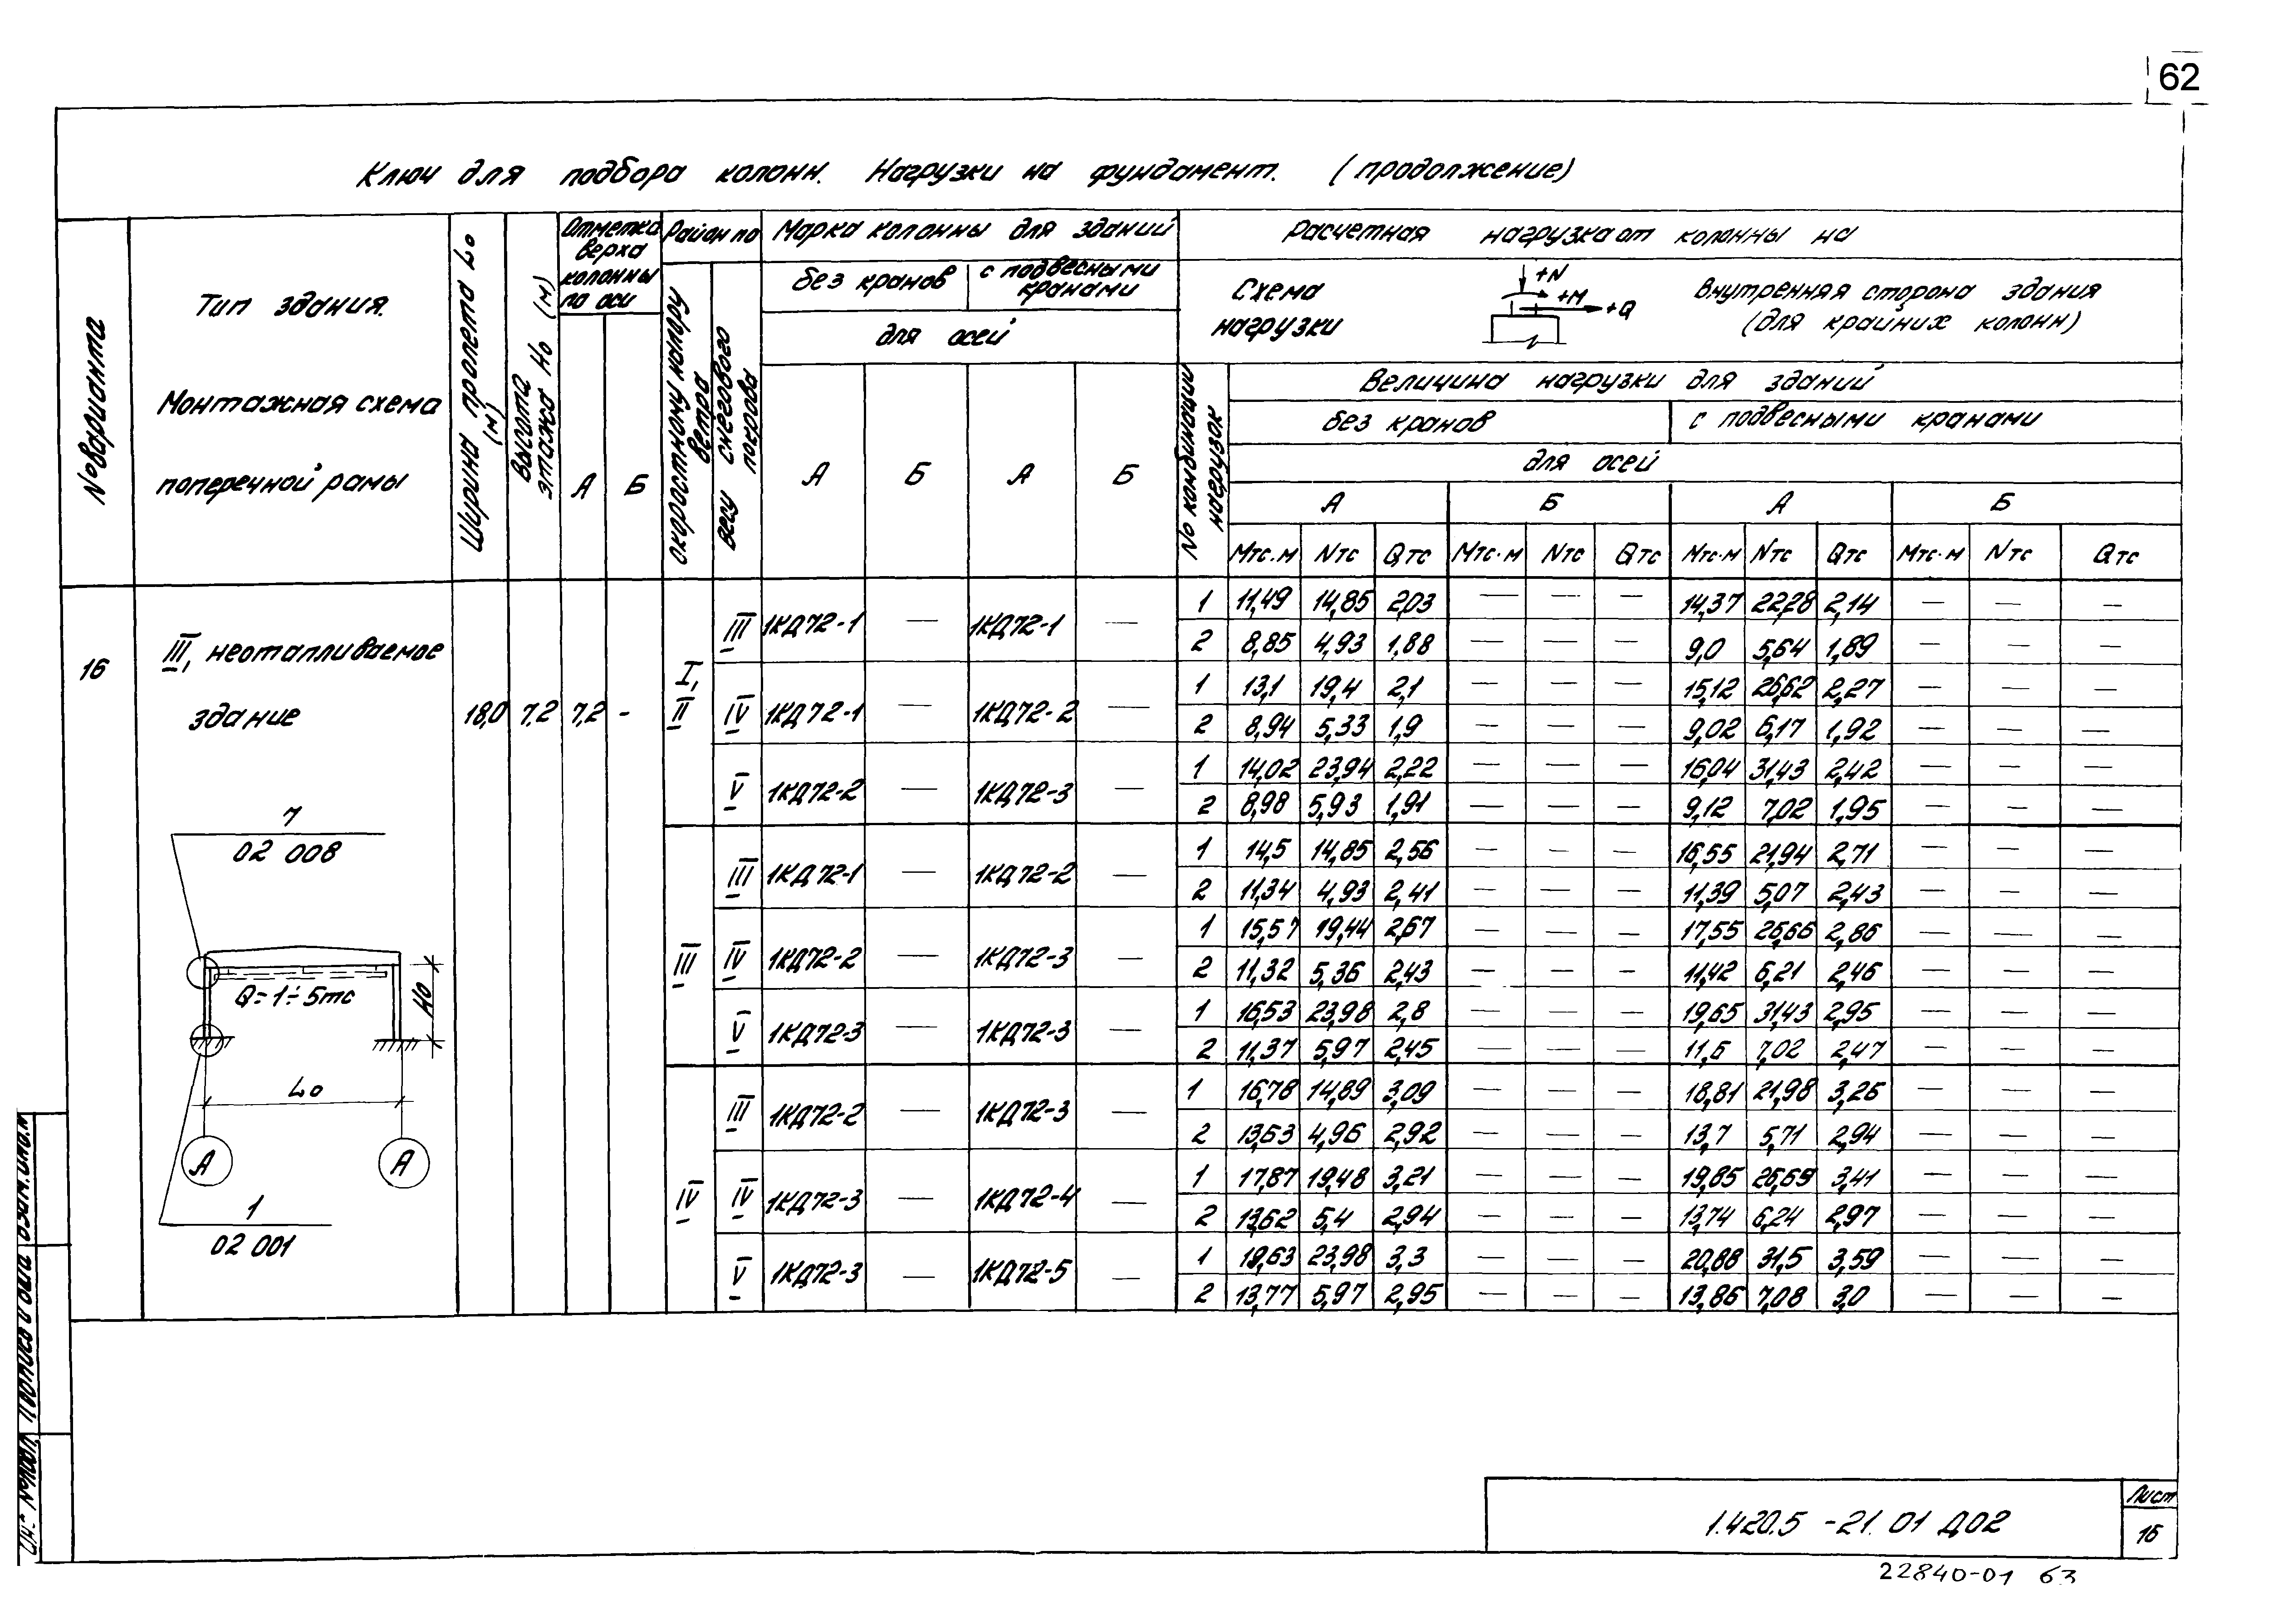 62
Ключ для подбора колонн. Нагрузки на фундамент. (продолжение)
№ варианта
Тип здания.
Монтажная схема
поперечной рамы
Ширина пролета Lо (м)
Высота этажа Hо (м)
Отметка верха колонны по оси
А Б
Район по
скоростному напору ветра
весу снегового покрова
Марка колонны для зданий
без кранов с подвесными кранами
для осей
А Б А Б
Расчетная нагрузка от колонны на
Схема нагрузки
+N
+M
+Q
Внутренняя сторона здания
(для крайних колонн)
№ комбинации нагрузок
Величина нагрузки для зданий
без кранов с подвесными кранами
для осей
А Б А Б
Mтс.м Nтс Qтс Mтс.м Nтс Qтс Mтс.м Nтс Qтс Mтс.м Nтс Qтс
16
III, неотапливаемое
здание
18,0 7,2 7,2 -
7
02 008
Q=1÷5тс
Hо
Lо
А А
1
02 001
I, II
III 1КД72-1 — 1КД72-1 —
1 11,49 14,85 2,03 — — — 14,37 22,28 2,14 — — —
2 8,85 4,93 1,88 — — — 9,0 5,64 1,89 — — —
IV 1КД72-1 — 1КД72-2 —
1 13,1 19,4 2,1 — — — 15,12 26,62 2,27 — — —
2 8,94 5,33 1,9 — — — 9,02 6,17 1,92 — — —
V 1КД72-2 — 1КД72-3 —
1 14,02 23,94 2,22 — — — 16,04 31,43 2,42 — — —
2 8,98 5,93 1,91 — — — 9,12 7,02 1,95 — — —
III
III 1КД72-1 — 1КД72-2 —
1 14,5 14,85 2,56 — — — 16,55 21,94 2,71 — — —
2 11,34 4,93 2,41 — — — 11,39 5,07 2,43 — — —
IV 1КД72-2 — 1КД72-3 —
1 15,57 19,44 2,67 — — — 17,55 26,66 2,86 — — —
2 11,32 5,36 2,43 — — — 11,42 6,21 2,46 — — —
V 1КД72-3 — 1КД72-3 —
1 16,53 23,98 2,8 — — — 19,65 31,43 2,95 — — —
2 11,37 5,97 2,45 — — — 11,6 7,02 2,47 — — —
IV
III 1КД72-2 — 1КД72-3 —
1 16,78 14,89 3,09 — — — 18,81 21,98 3,26 — — —
2 13,63 4,96 2,92 — — — 13,7 5,71 2,94 — — —
IV 1КД72-3 — 1КД72-4 —
1 17,87 19,48 3,21 — — — 19,85 26,69 3,41 — — —
2 13,62 5,4 2,94 — — — 13,74 6,24 2,97 — — —
V 1КД72-3 — 1КД72-5 —
1 19,63 23,98 3,3 — — — 20,88 31,5 3,59 — — —
2 13,77 5,97 2,95 — — — 13,86 7,08 3,0 — — —
Взам.инв.№
Подпись и дата
№ подл.
1.420.5 -21. 01 Д02
Лист
16
22840-01 63